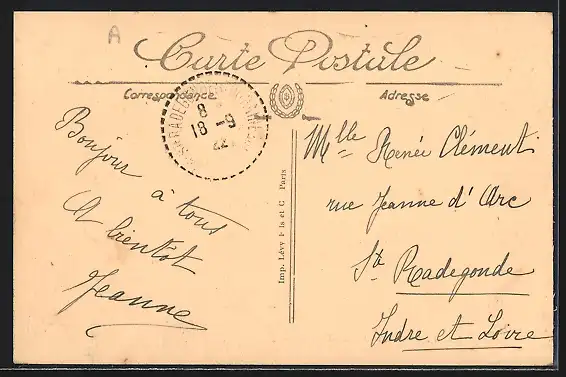 A
Carte Postale
Correspondance
Adresse
8
18 - 9
22
Bonjour
à tous
A bientôt
Jeanne
Imp. Lévy Fils et C Paris
Mlle Renée Clément
rue Jeanne d'Arc
Ste Radegonde
Indre et Loire